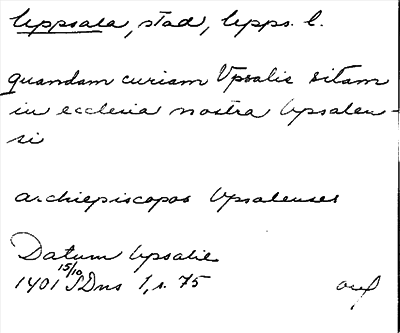 Uppsala, stad, Upps. l.
quandam curiam Vpsalie sitam
in ecclesia nostra Upsalen-
si
archiepiscopos Upsalenses
Datum Upsalie
1401 15/10 SDns 1, s. 75